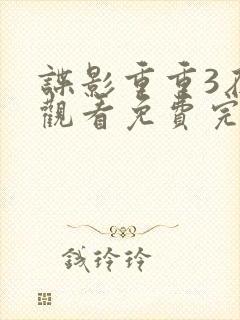 諜影重重3
觀看免費完
錢玲玲